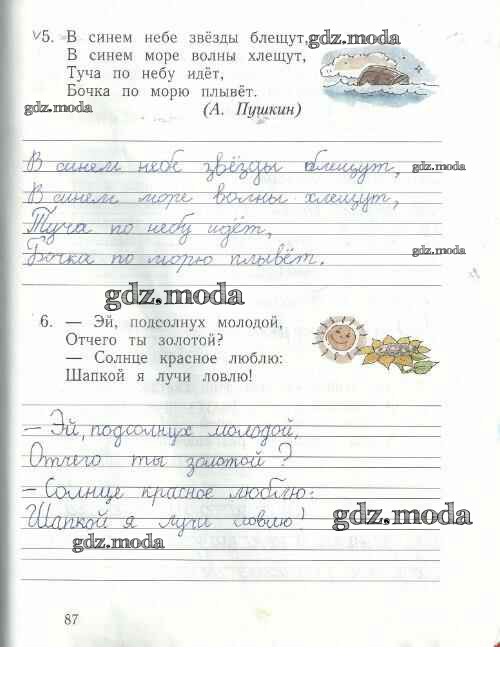 √5. В синем небе звёзды блещут, gdz.moda
В синем море волны хлещут,
Туча по небу идёт,
Бочка по морю плывёт.
gdz.moda (А. Пушкин)
В синем небе звёзды блещут, gdz.moda
В синем море волны хлещут,
Туча по небу идёт,
Бочка по морю плывёт. gdz.moda
gdz.moda
6. — Эй, подсолнух молодой,
Отчего ты золотой?
— Солнце красное люблю:
Шапкой я лучи ловлю!
— Эй, подсолнух молодой,
Отчего ты золотой?
— Солнце красное люблю:
Шапкой я лучи ловлю! gdz.moda
gdz.moda
87